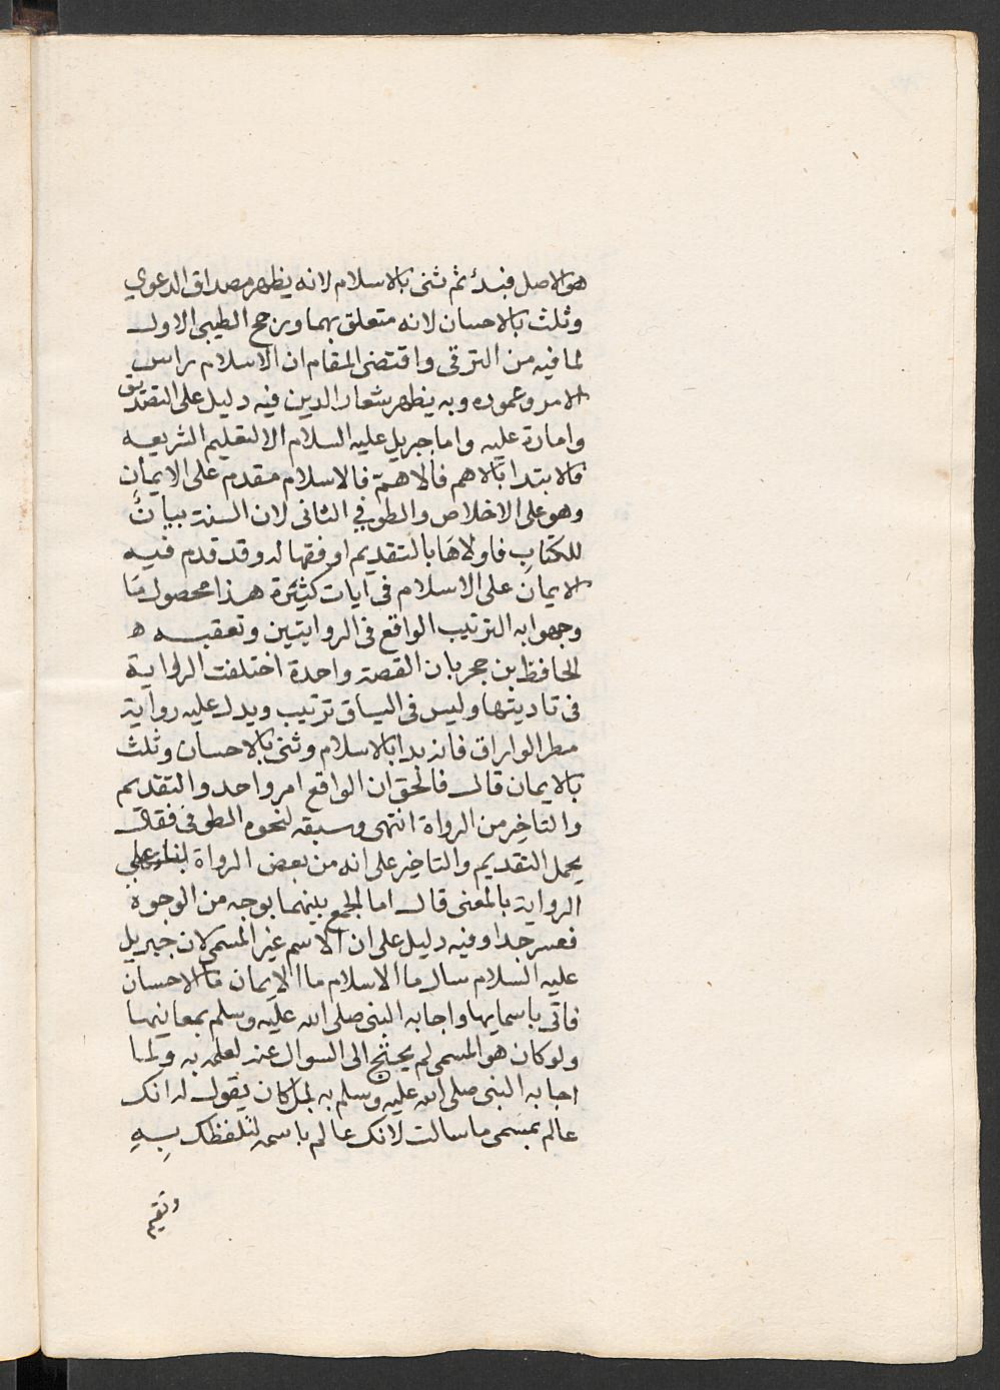 هو الاصل فبدئ ثم ثنى بالاسلام لانه يظهر مصداق الدعوي
وثلث بالاحسان لانه متعلق بهما ورجح الطيبي الاول
لما فيه من الترقى واقتضى المقام ان الاسلام راس
الامر وعموده وبه يظهر شعار الدين فيه دليل على التصديق
وامارة عليه واما جبريل عليه السلام الا لتعليم الشريعه
فالابتدا بالاهم فالاهم فالاسلام مقدم على الايمان
وهو على الاخلاص والطوفي الثانى لان السنة بيان
للكتاب فاولاها بالتقديم اوفقها له وقد قدم فيه
الايمان على الاسلام فى ايات كثيرة هذا محصول ما
وجهوا به الترتيب الواقع فى الروايتين وتعقبه ه
الحافظ بن حجر بان القصة واحدة اختلفت الرواية
فى تاديتها وليس فى السياق ترتيب ويدل عليه رواية
مطر الوراق فانه بدا بالاسلام وثنى بالاحسان وثلث
بالايمان قال فالحق ان الواقع امر واحد والتقديم
والتاخير من الرواة انتهى وسبقه لنحوه الطوفى فقال
يحمل التقديم والتاخير على انه من بعض الرواة بناء على
الرواية بالمعنى قال اما الجمع بينهما بوجه من الوجوه
فعسر جدا وفيه دليل على ان الاسم غير المسمى لان جبريل
عليه السلام سال ما الاسلام ما الايمان ما الاحسان
فاتى باسمايها واجابه النبى صلى الله عليه وسلم بمعانيها
ولو كان هو المسمى لم يحتج الى السوال عنه لعلمه به ولما
اجابه النبى صلى الله عليه وسلم به بل كان يقول له انك
عالم بمسمى ما سالت لانك عالم باسمه لتلفظك بِهِ
وتقيم